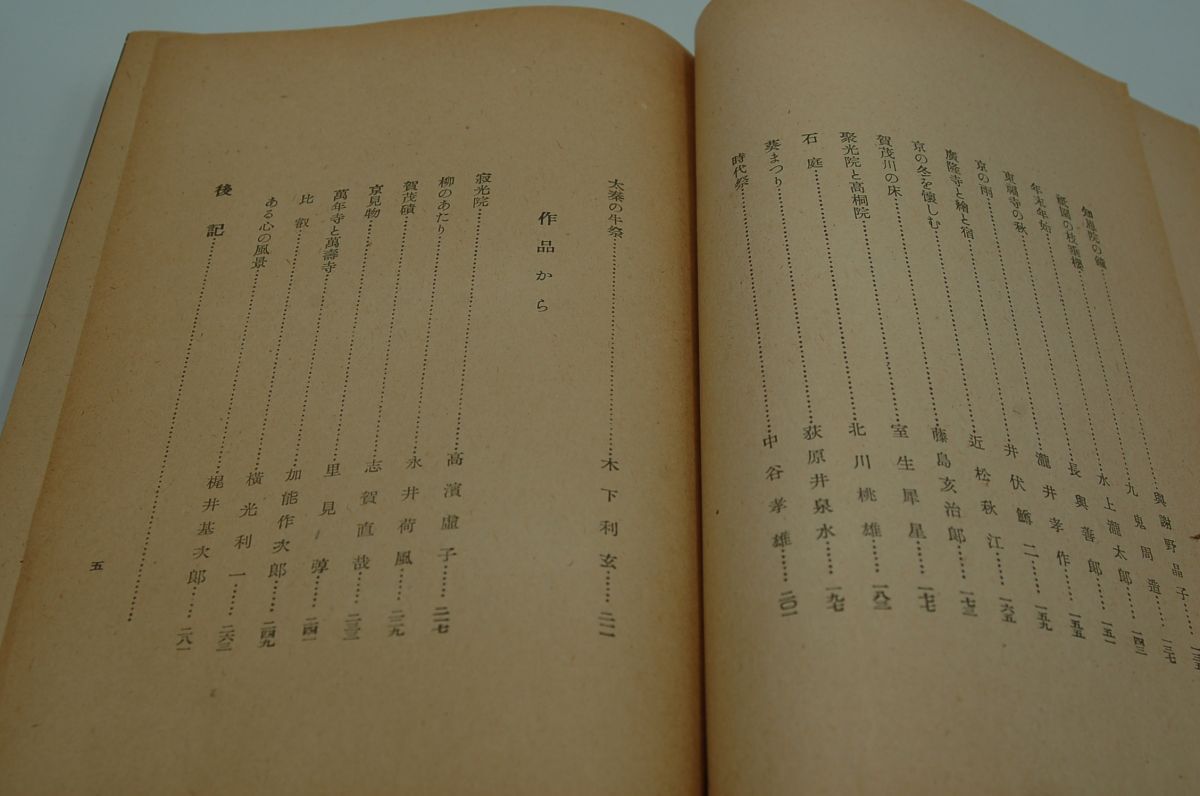 知恩院の鐘……與謝野晶子……
祇園の枝垂櫻……九鬼周造……一三七
年末年始……水上瀧太郎……一四三
東福寺の秋……長與善郎……一五一
京の雨……瀧井孝作……一五五
廣隆寺と繪と宿……井伏鱒二……一五九
京の冬を懷しむ……近松秋江……一六五
賀茂川の床……藤島亥治郎……一七三
聚光院と高桐院……室生犀星……一七七
石庭……北川桃雄……一八三
葵まつり……荻原井泉水……一九七
時代祭……中谷孝雄……二〇一
太秦の牛祭……木下利玄……二一一
作品から
寂光院……高濱虚子……二一七
柳のあたり……永井荷風……二二九
賀茂磧……志賀直哉……二三三
京見物……里見弴……二四一
萬年寺と萬壽寺……加能作次郎……二四九
比叡……横光利一……二六三
ある心の風景……梶井基次郎……二八一
後記……
五